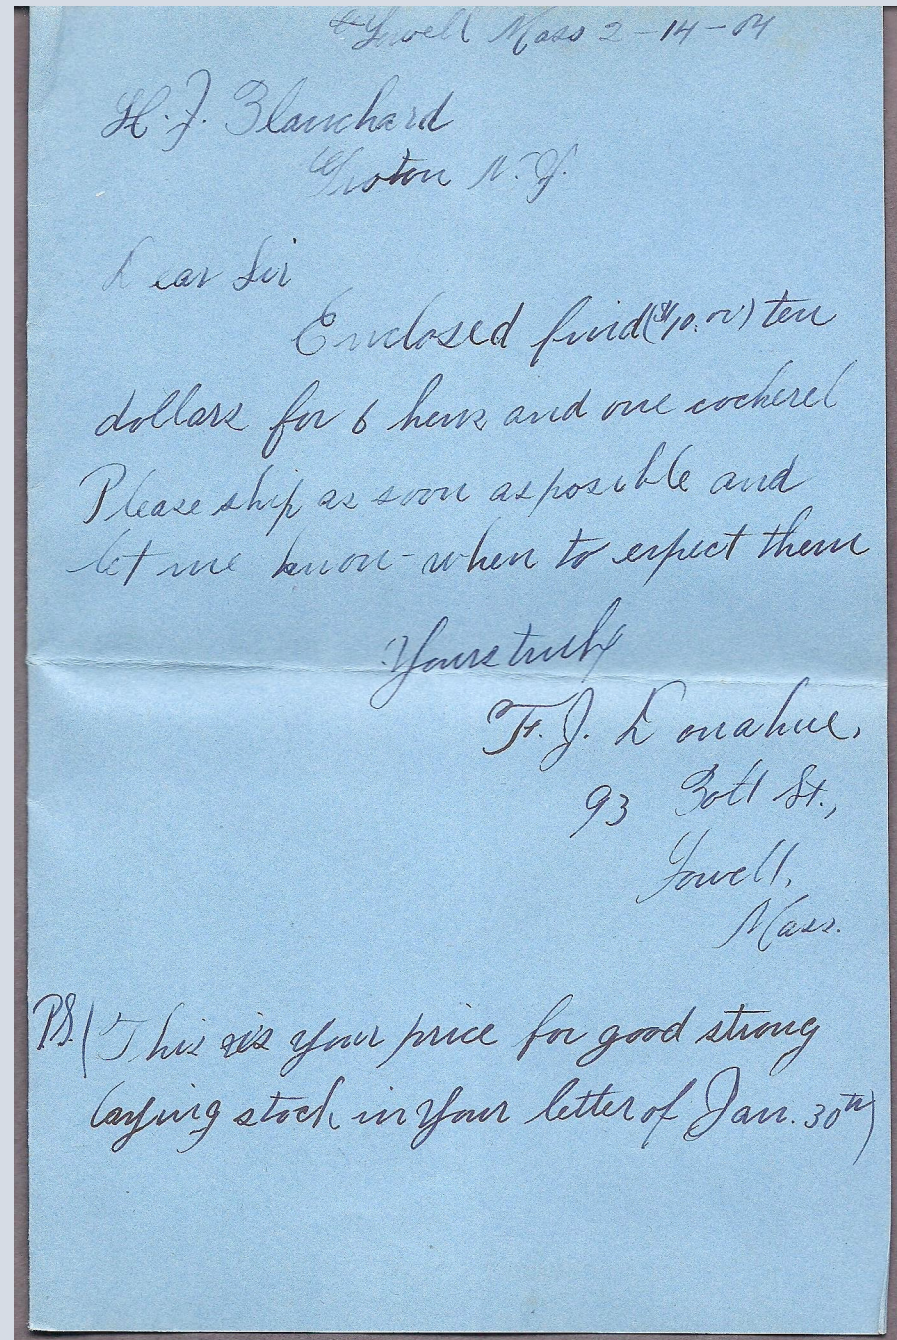 Lowell Mass 2-14-04
H. J. Blanchard
Groton N. Y.
Dear Sir
Enclosed find ($10.00) ten
dollars for 6 hens and one cockerel
Please ship as soon as posible and
let me know when to expect them
Yours truly
F. J. Donahue,
93 St.,
Lowell,
Mass.
PS. (This is your price for good strong
laying stock in your letter of Jan. 30th)